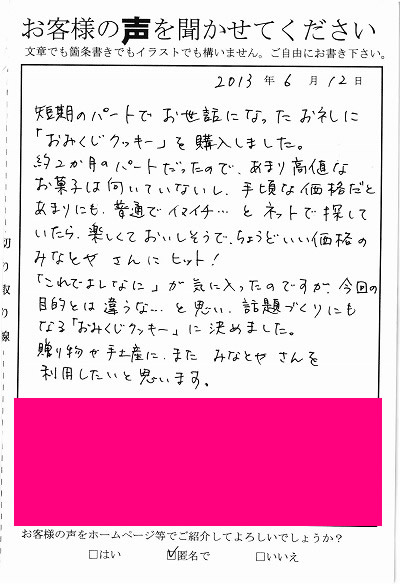 お客様の声を聞かせてください
文章でも箇条書きでもイラストでも構いません。ご自由にお書き下さい。
2013 年 6 月 12 日
短期のパートで お世話になった お礼に
「おみくじクッキー」を 購入しました。
約2か月の パートだったので、あまり 高値な
お菓子は 向いていないし、手頃な 価格だと
あまりにも、普通で イマイチ… と ネットで 探して
いたら、楽しくて おいしそうで、ちょうどいい 価格の
みなとや さんに ヒット!
「これでよしなに」が 気に入ったのですが、今回の
目的とは 違うな… と思い、話題づくりにも
なる「おみくじクッキー」に 決めました。
贈り物や 手土産に、また みなとや さんを
利用したいと 思います。
切り取り線
お客様の声をホームページ等でご紹介してよろしいでしょうか?
□はい ☑匿名で □いいえ